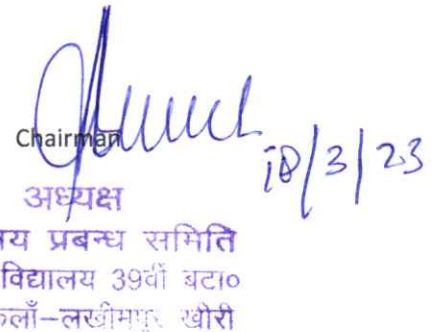 Chairman
18/3/23
अध्यक्ष
प्रबन्ध समिति
विद्यालय 39वीं बटा०
लखीमपुर खीरी